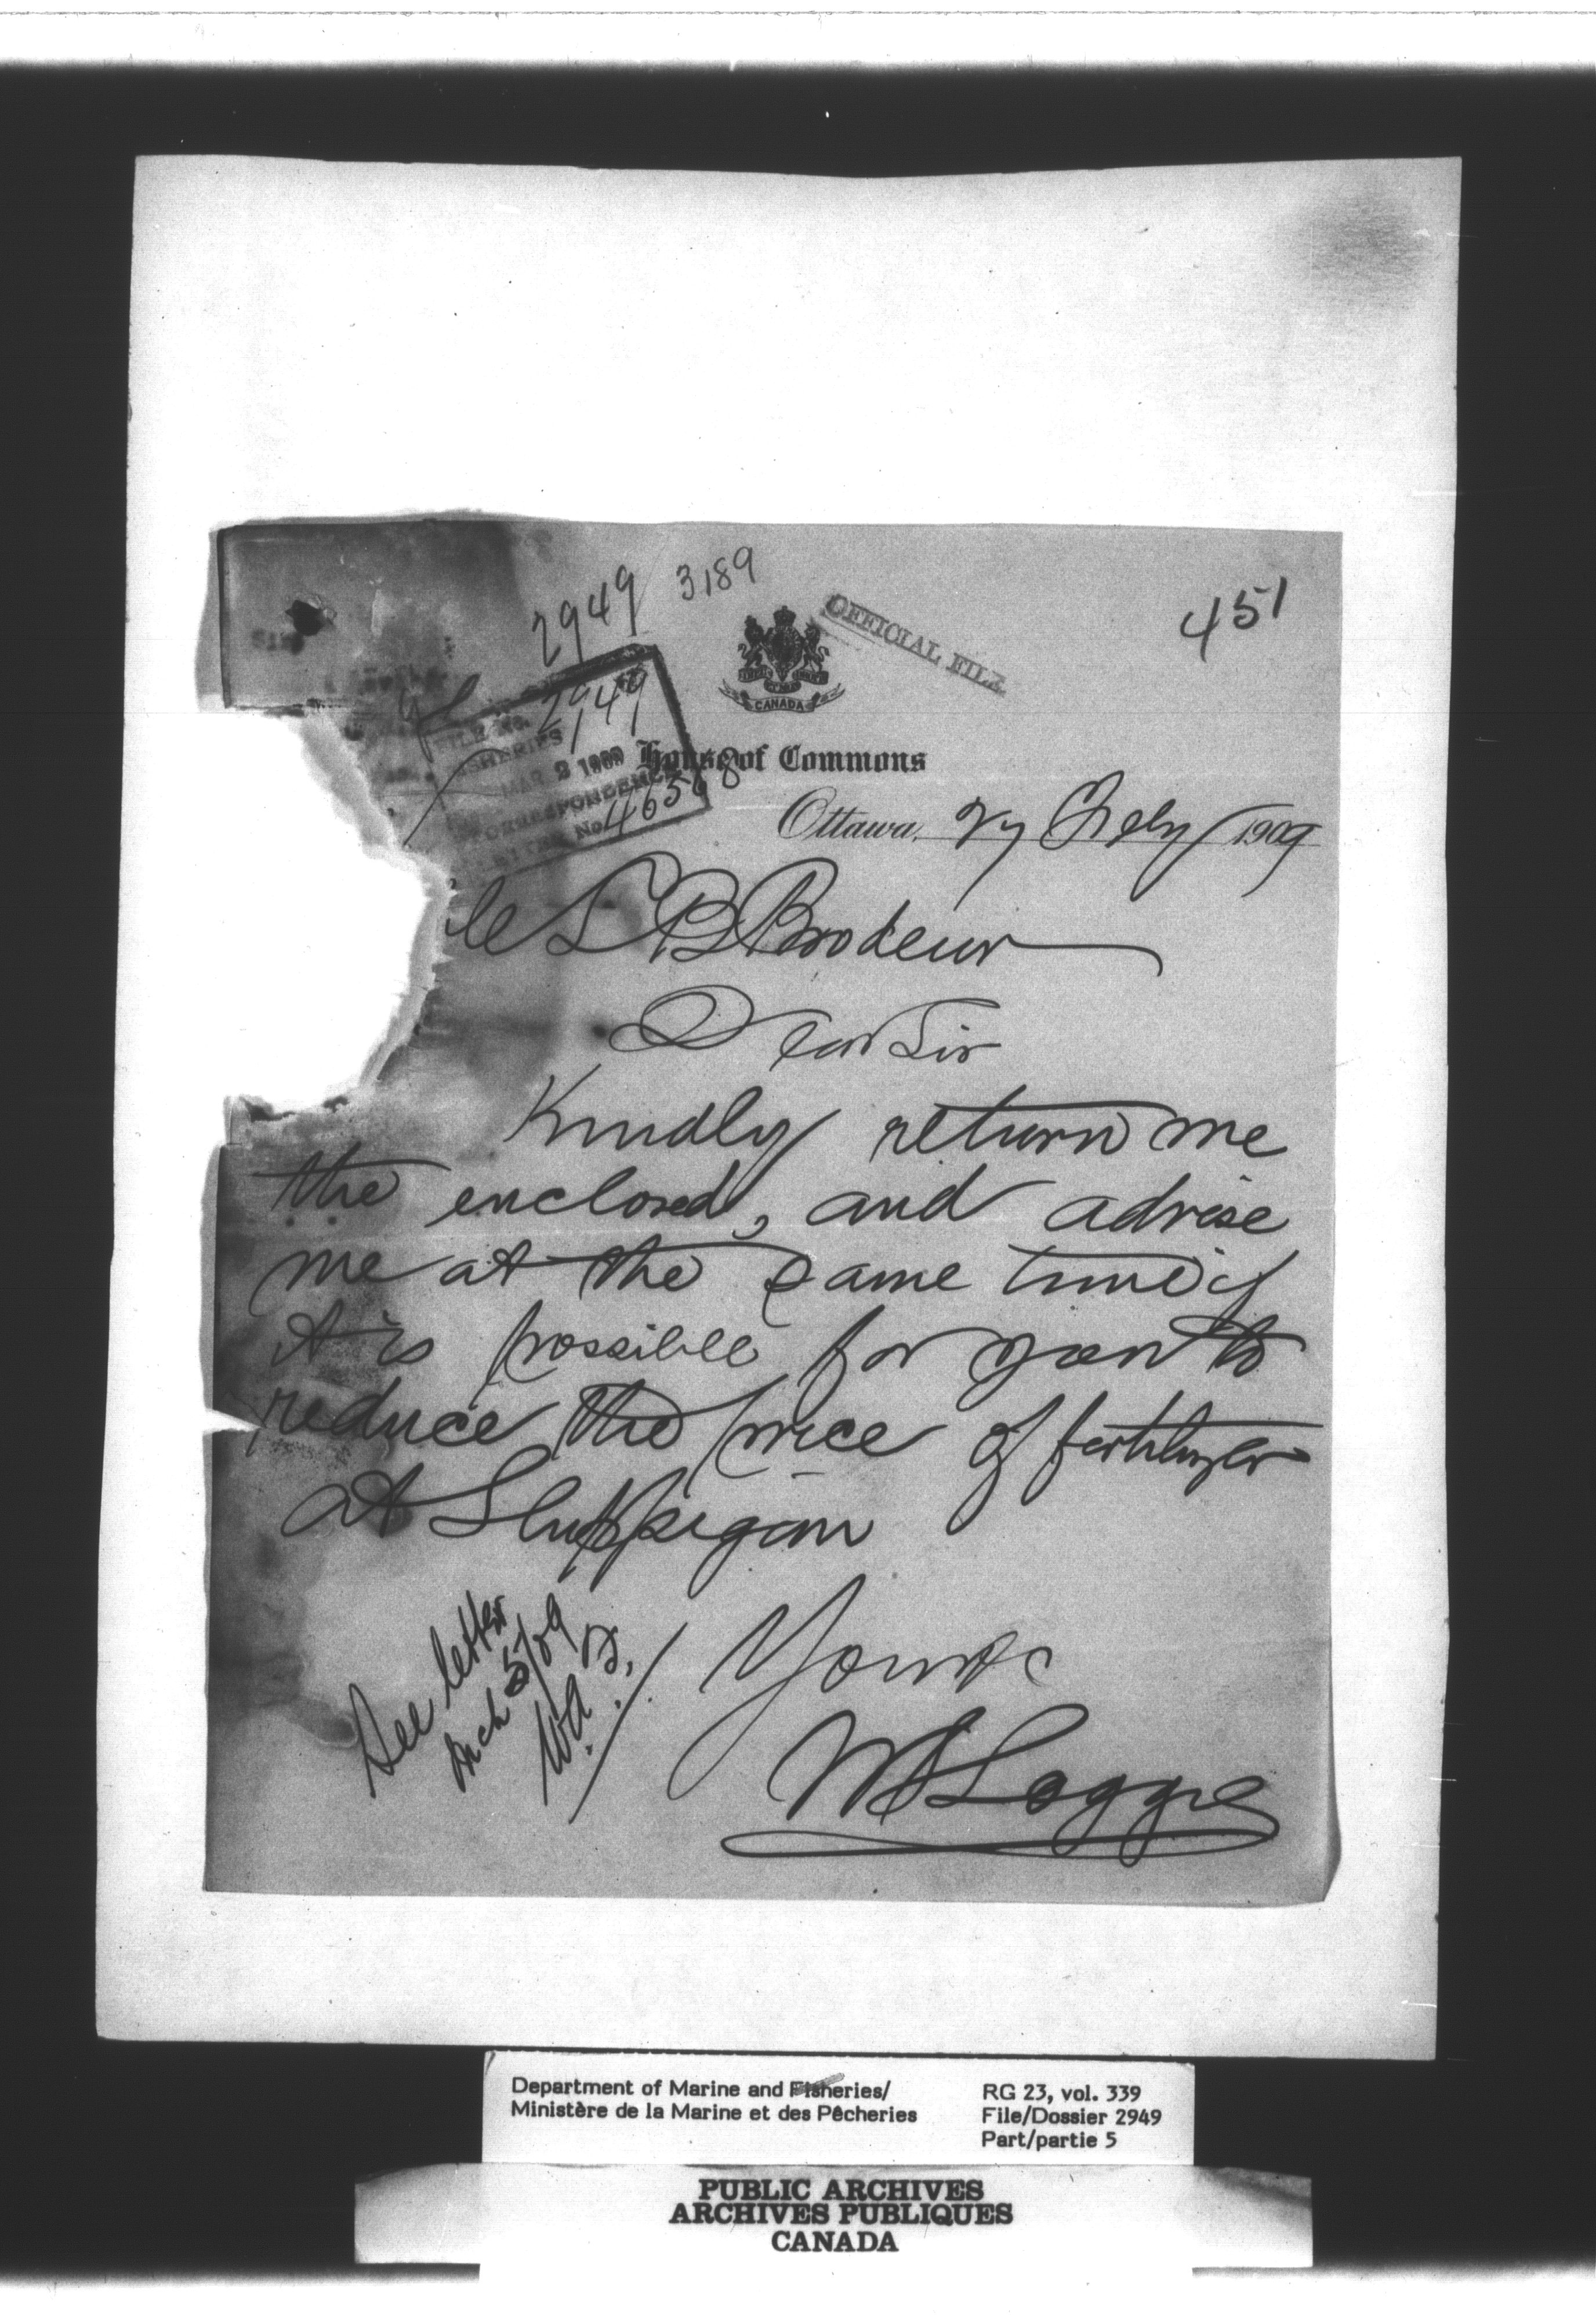 2949 3189
451
OFFICIAL FILE
CANADA
FILE No. 2949
FISHERIES
MAR 2 1909
CORRESPONDENCE
No 46568
House of Commons
Ottawa, 27 Feby 1909
le L B Brodeur
Dear Sir
Kindly return me
the enclosed, and advise
me at the same time if
it is possible for you to
reduce the price of fertilizer
at Shippigan
Yours
W S Loggie
See letter
Mch 5/09
W.A. B.
Department of Marine and Fisheries/
Ministère de la Marine et des Pêcheries
RG 23, vol. 339
File/Dossier 2949
Part/partie 5
PUBLIC ARCHIVES
ARCHIVES PUBLIQUES
CANADA